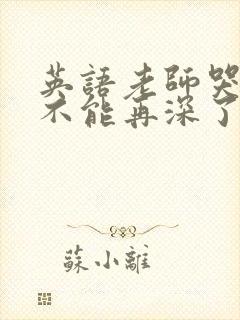 英語老師哭
不能再深了
蘇小離